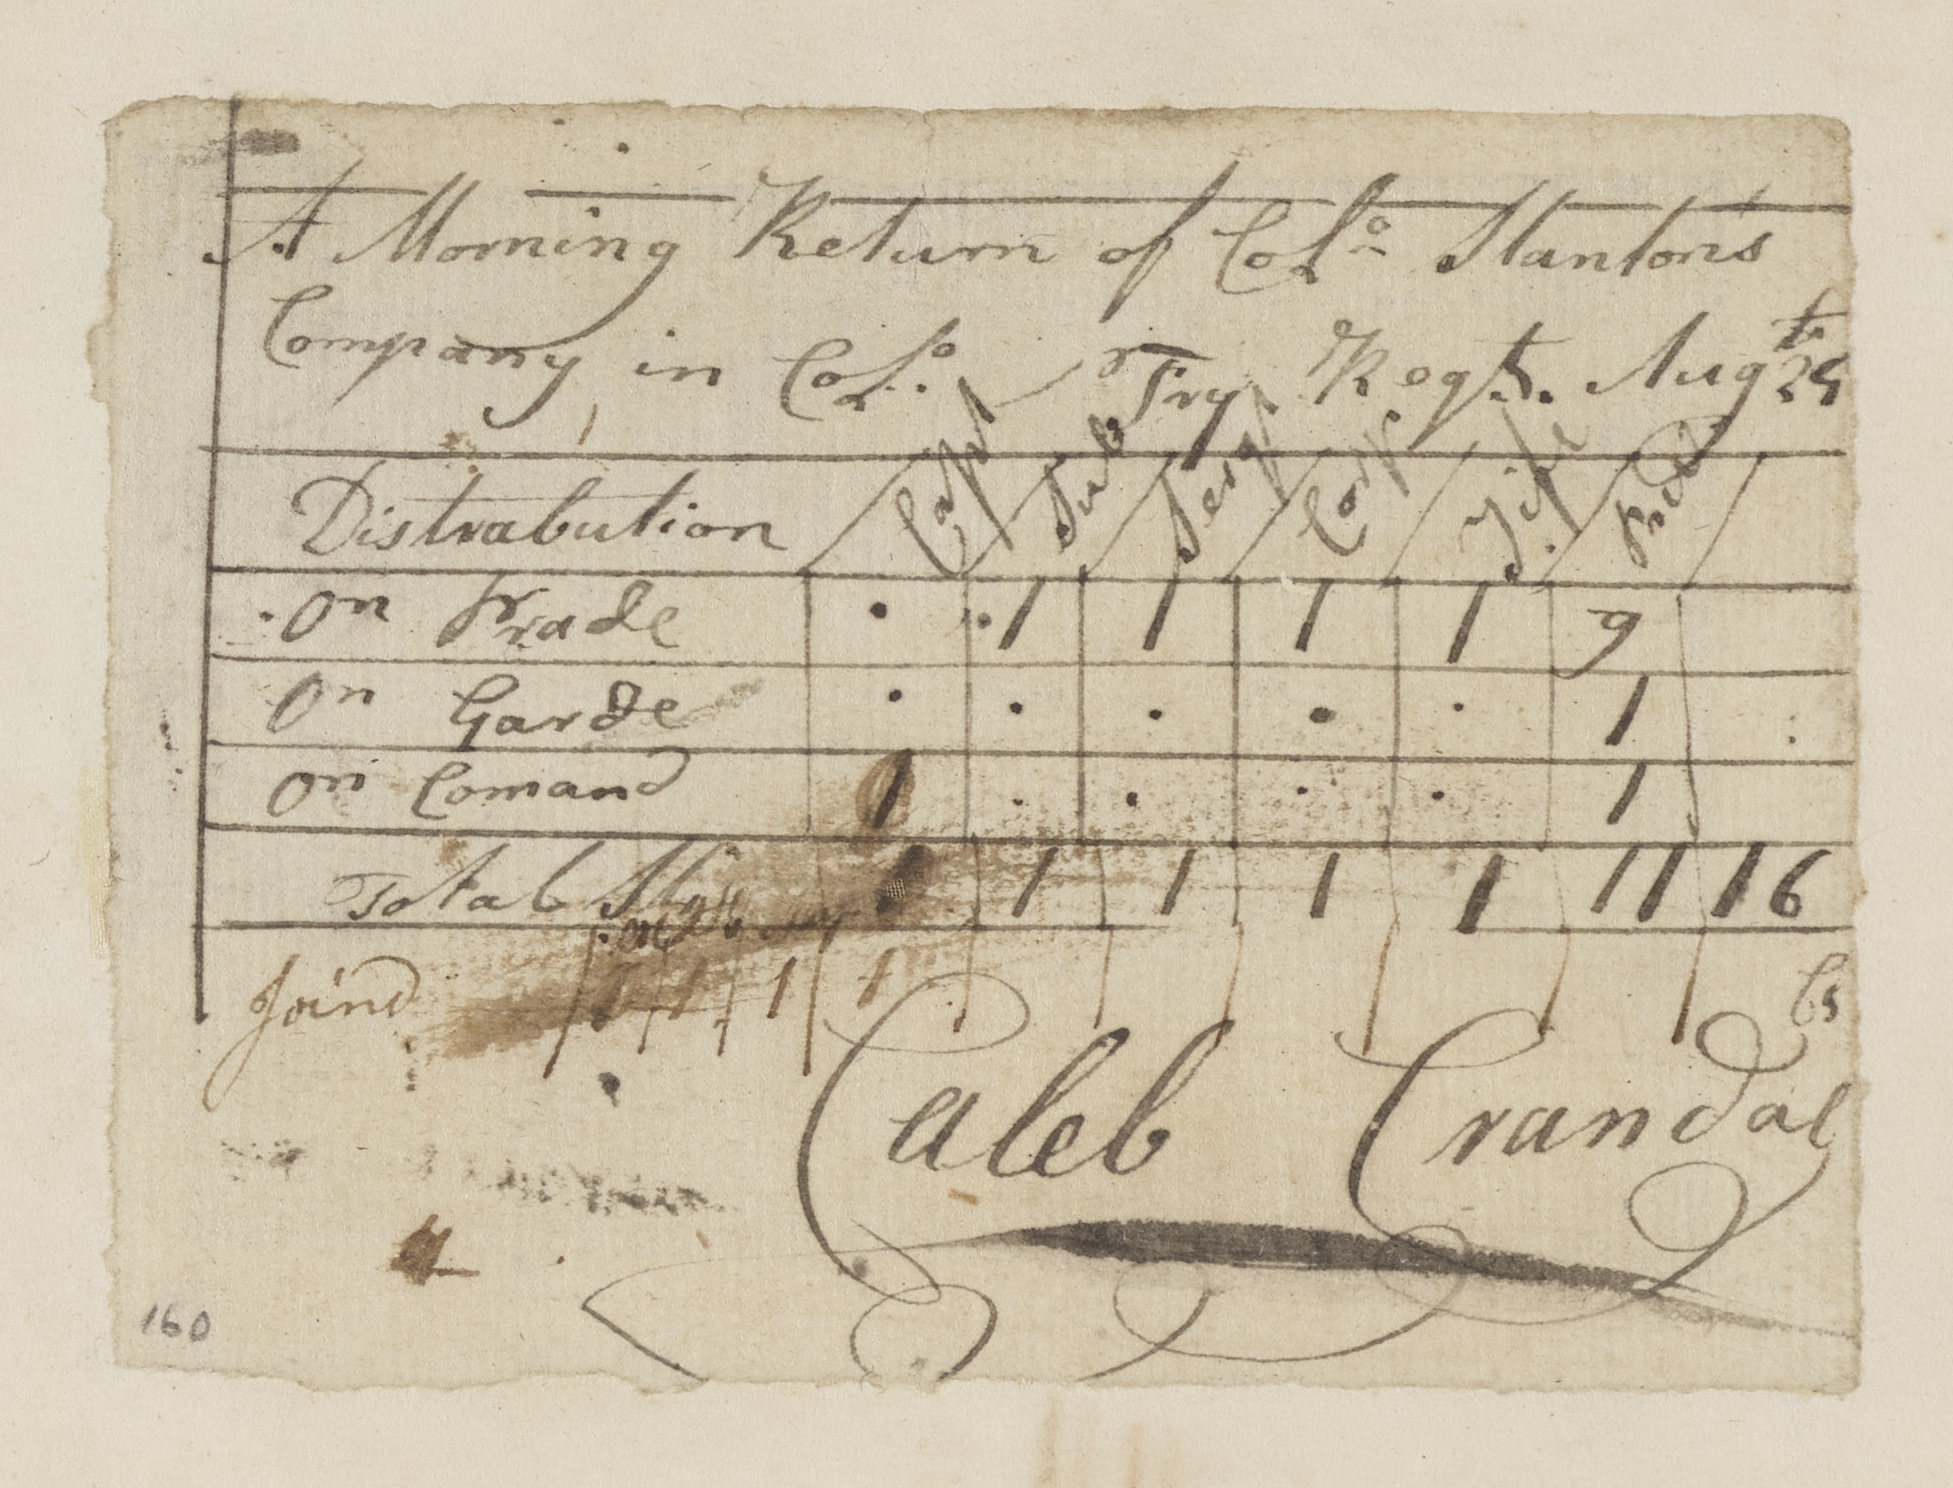 A Morning Return of Colo Stantons
Company in Colo Fry Regt. Augt 25
Distrabution Capt Sub Serg Corp Fife Privt
On Prade . . 1 1 1 1 9
On Garde . . . . . 1
On Comand 1 . . . . 1
Total 1 1 1 1 11 16
Joind 1 1 1 1
Caleb Crandal
160